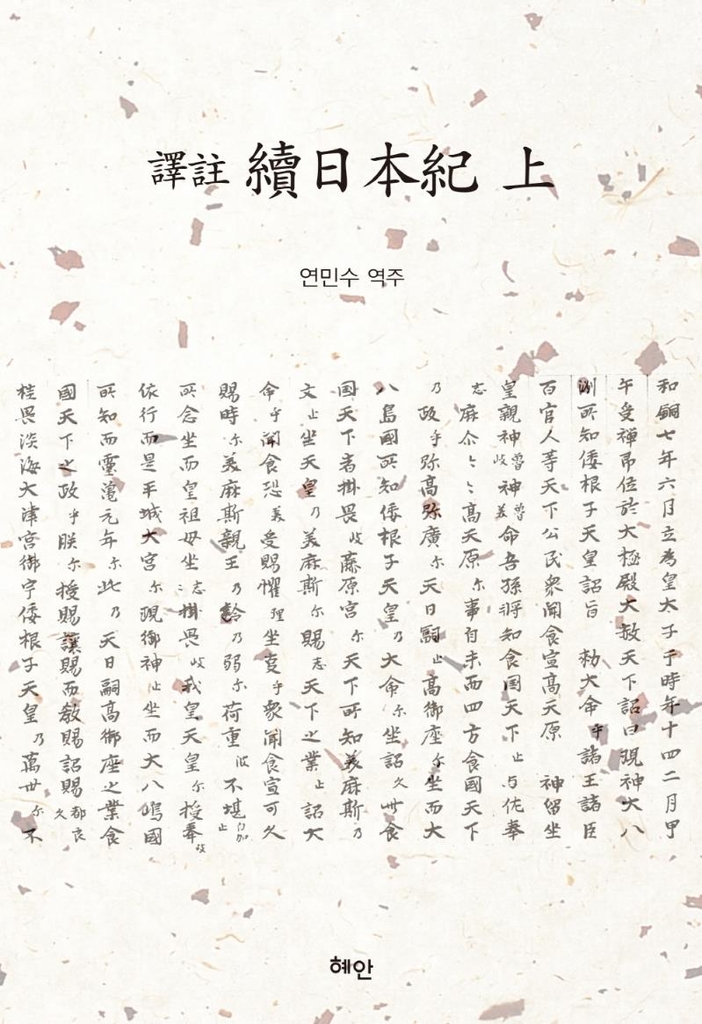 譯註 續日本紀 上
연민수 역주
和嗣七年六月立為皇太子于時年十四二月甲
午受禪即位於大極殿大赦天下詔曰現神大八
洲所知倭根子天皇詔旨 勅大命乎諸王諸臣
百官人等天下公民衆聞食宣高天原 神留坐
皇親神魯岐神魯美命吾孫将知食国天下止与佐奉
志麻尓々々高天原尓事自末而四方食國天下
乃政乎弥高弥廣尓天日嗣止高御座尓坐而大
八島國所知倭根子天皇乃大命尓坐詔久此食
国天下者掛畏岐藤原宮尓天下所知美麻斯乃
文止坐天皇乃美麻斯尓賜志天下之業止詔大
命乎聞食恐美受賜懼理坐事乎衆聞食宣可久
賜時尓美麻斯親王乃齡乃弱尓荷重波不堪
所念坐而皇祖母坐志掛畏岐我皇天皇尓授奉岐
依行而是平城大宮尓現御神止坐而大八嶋國
所知而靈龜元年尓此乃天日嗣高御座之業食
國天下之政乎朕尓授賜讓賜而教賜詔賜都良久
挂畏淡海大津宮御宇倭根子天皇乃萬世尓不
혜안